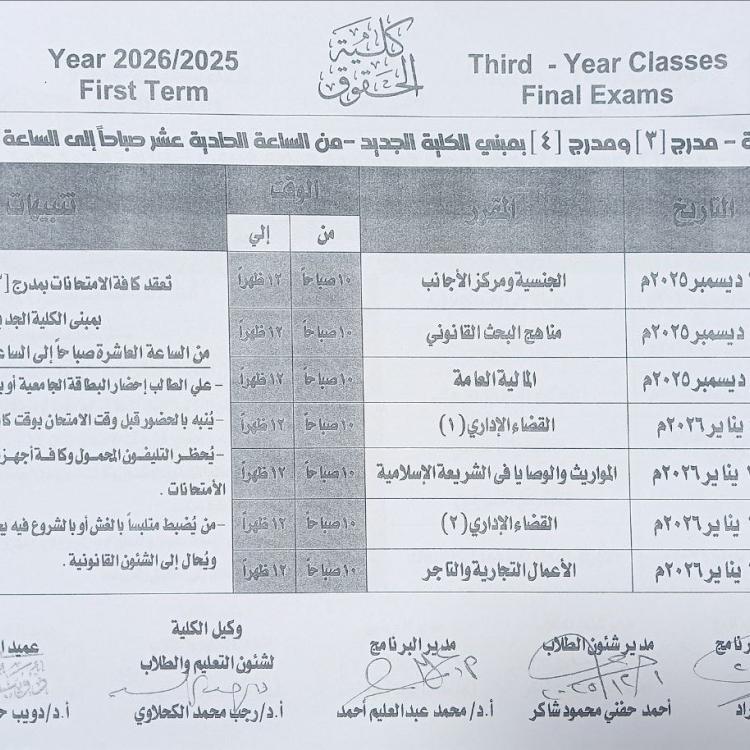 Year 2026/2025
First Term
كلية
الحقوق
Third - Year Classes
Final Exams
ة - مدرج [٣] ومدرج [٤] بمبني الكلية الجديد - من الساعة الحادية عشر صباحاً إلى الساعة
التاريخ المقرر الوقت تنبيهات
من إلي
ديسمبر ٢٠٢٥م الجنسية ومركز الأجانب ١٠ صباحاً ١٢ ظهراً
ديسمبر ٢٠٢٥م مناهج البحث القانوني ١٠ صباحاً ١٢ ظهراً
ديسمبر ٢٠٢٥م المالية العامة ١٠ صباحاً ١٢ ظهراً
يناير ٢٠٢٦م القضاء الإداري (١) ١٠ صباحاً ١٢ ظهراً
يناير ٢٠٢٦م المواريث والوصايا فى الشريعة الإسلامية ١٠ صباحاً ١٢ ظهراً
يناير ٢٠٢٦م القضاء الإداري (٢) ١٠ صباحاً ١٢ ظهراً
يناير ٢٠٢٦م الأعمال التجارية والتاجر ١٠ صباحاً ١٢ ظهراً
تعقد كافة الامتحانات بمدرج [
بمبنى الكلية الجد
من الساعة العاشرة صباحاً إلى السا
- علي الطالب إحضار البطاقة الجامعية أو
- يُنبه بالحضور قبل وقت الامتحان بوقت كا
- يُحظر التليفون المحمول وكافة أجهز
الأمتحانات .
- من يُضبط متلبساً بالغش أو بالشروع فيه يع
ويُحال إلى الشئون القانونية .
رنامج مدير شئون الطلاب مدير البرنامج وكيل الكلية عميد ا
لشئون التعليم والطلاب
٢٠٢٥/١٢/١
راد أحمد حفني محمود شاكر أ.د/ محمد عبدالعليم أحمد أ.د/ رجب محمد الكحلاوي أ.د/دويب ح